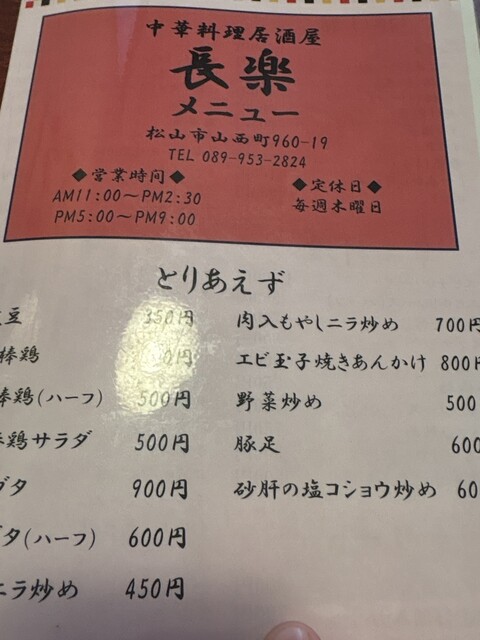 中華料理居酒屋
長楽
メニュー
松山市山西町960-19
TEL 089-953-2824
◆営業時間◆
AM11:00〜PM2:30
PM5:00〜PM9:00
◆定休日◆
毎週木曜日
とりあえず
豆 350円
棒鶏 0円
棒鶏(ハーフ) 500円
鶏サラダ 500円
ダタ 900円
タ(ハーフ) 600円
ニラ炒め 450円
肉入もやしニラ炒め 700円
エビ玉子焼きあんかけ 800円
野菜炒め 500
豚足 600
砂肝の塩コショウ炒め 60